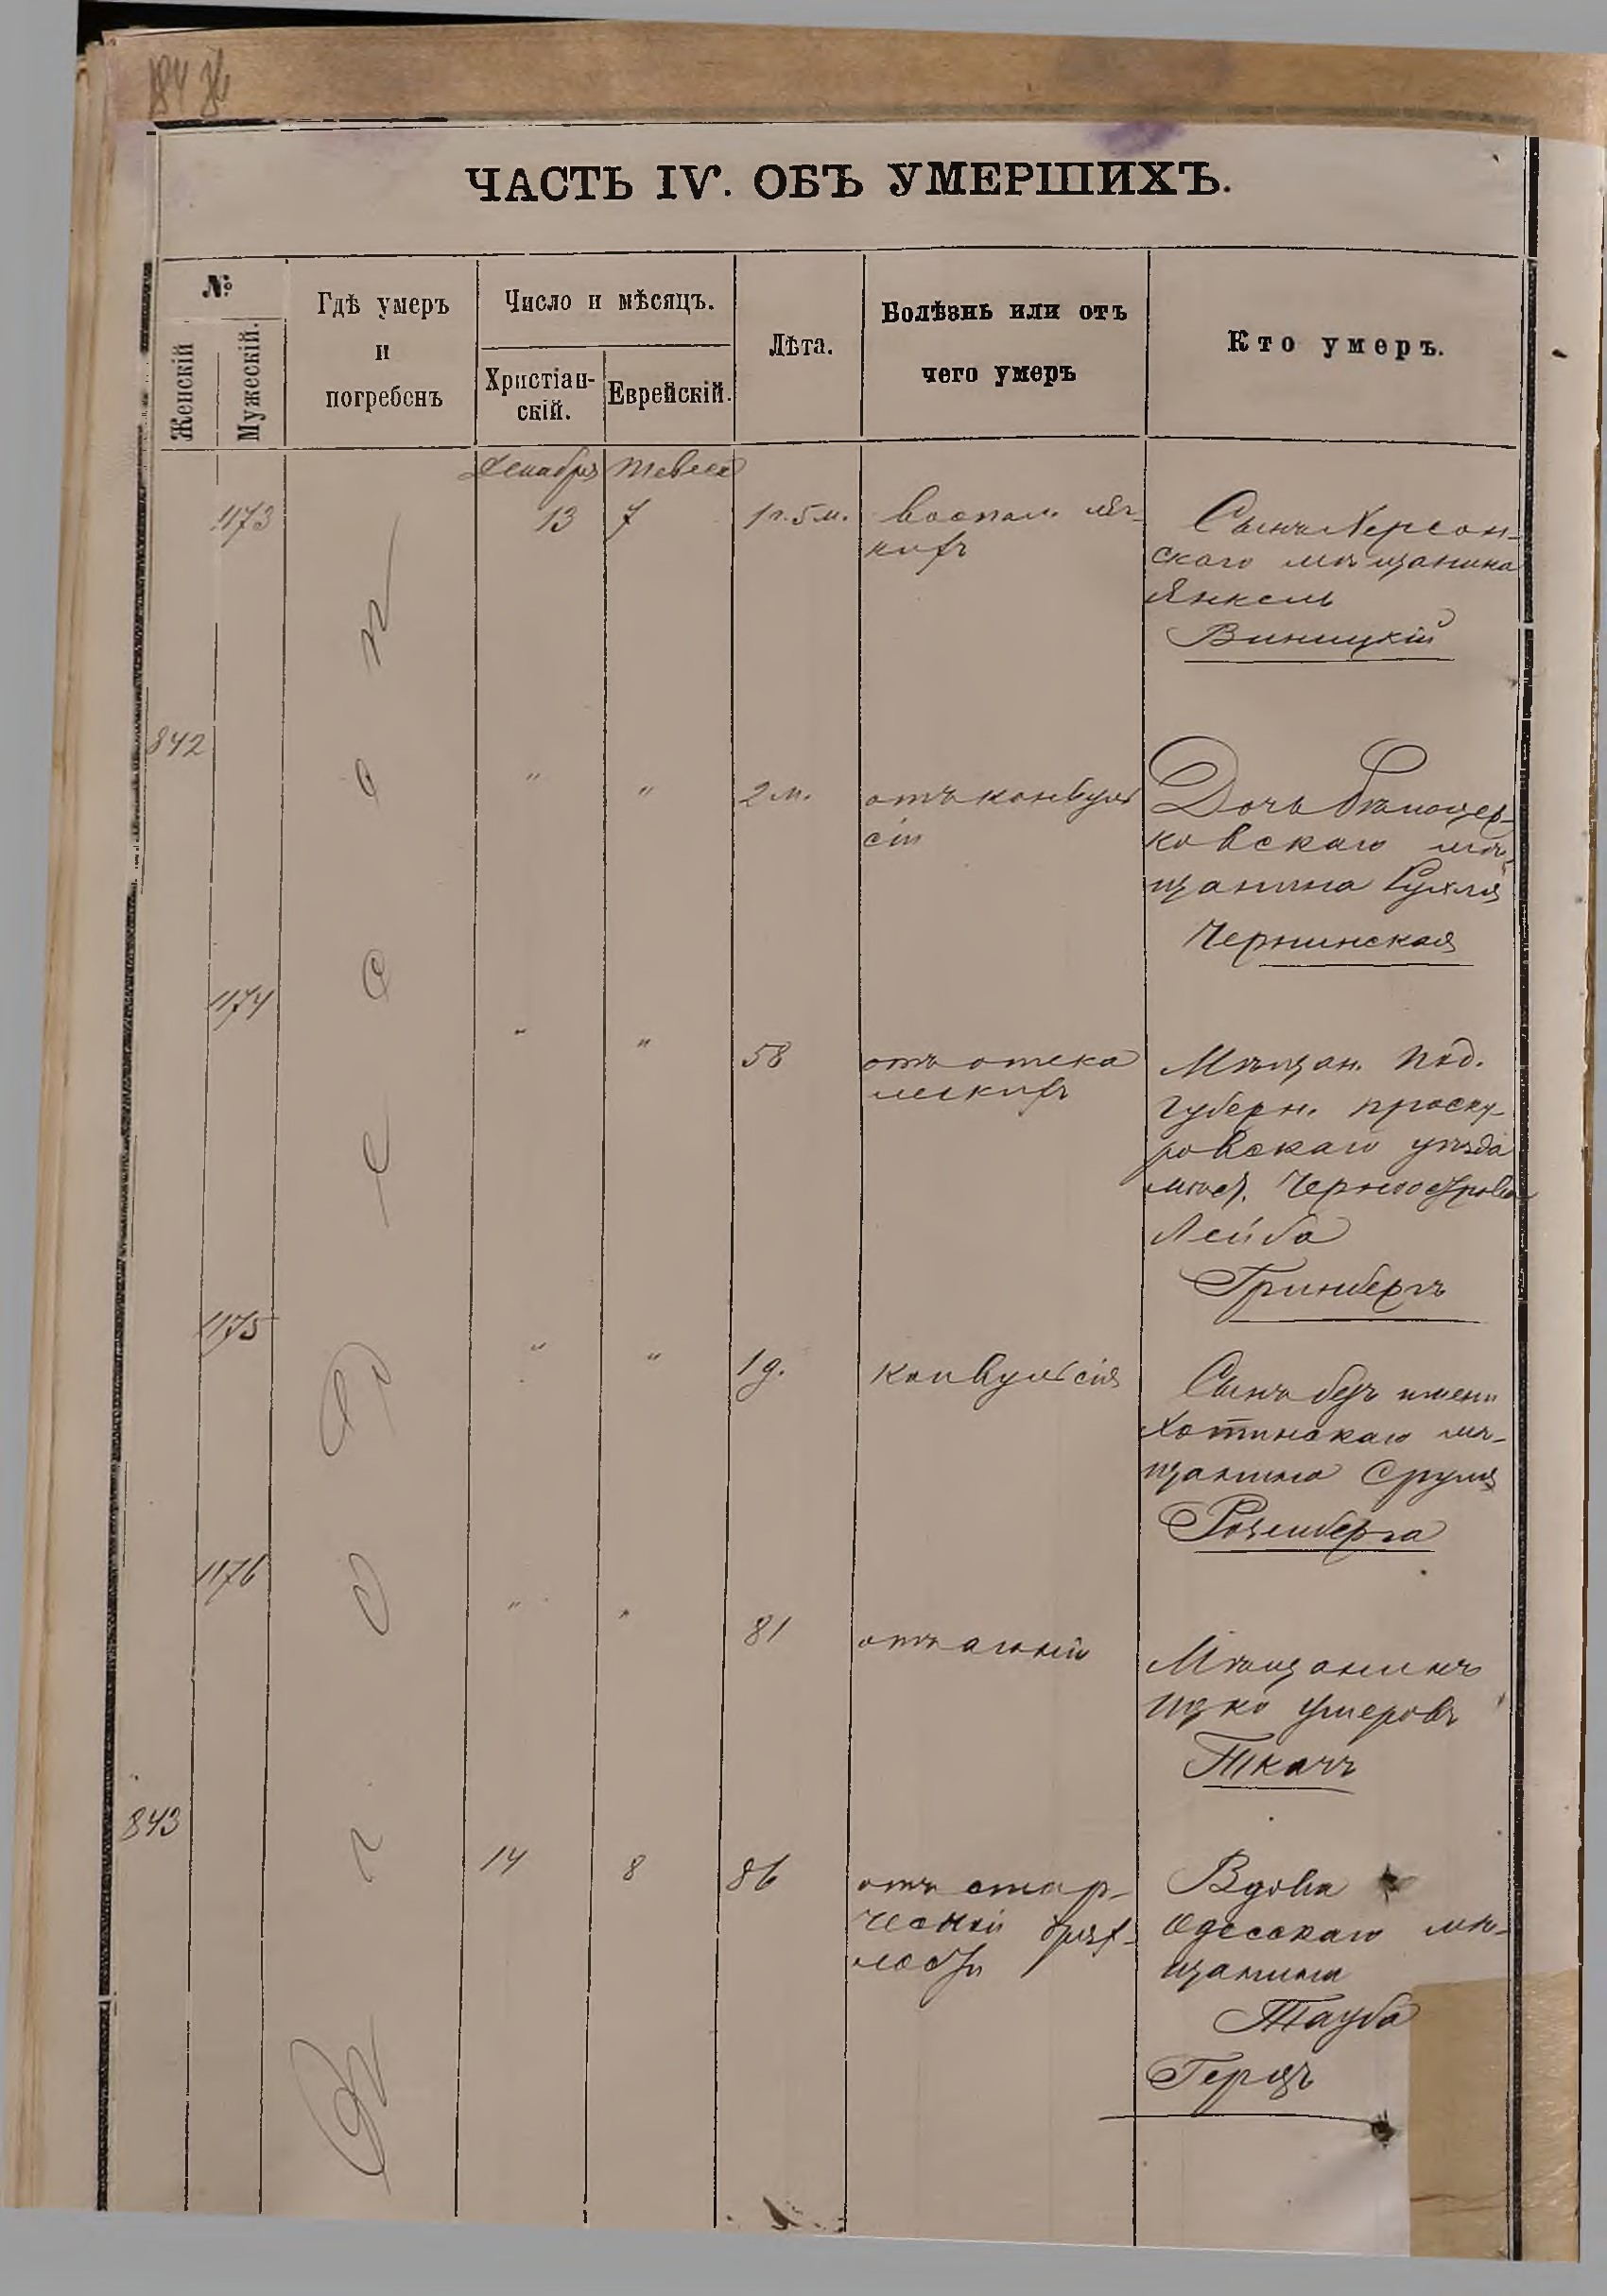 ЧАСТЬ IV. ОБЪ УМЕРШИХЪ.
№
Женскій
Мужескій.
Гдѣ умеръ
и
погребенъ
Число и мѣсяцъ.
Христіан-
скій.
Еврейскій.
Лѣта.
Болѣзнь или отъ
чего умеръ
Кто умеръ.
Декабря Тевеса
1173 13 7 1 г. 5 м. воспал. лег-
кихъ
Сынъ Херсон-
скаго мѣщанина
Янкель
Виницкій
842 " " 2 м. отъ конвуль
сіи
Дочь бѣлоцер-
ковскаго мѣ-
щанина Рухля
Чернинская
1174 " " 58 отъ отека
легкихъ
Мѣщан. Под.
губерн. проску-
ровскаго уѣзда
мѣст. Черноострова
Лейба
Гринбергъ
1175 " " 1 д. конвульсія
Сынъ безъ имени
Хотинскаго мѣ-
щанина Сруля
Розенберга
1176 " " 81 отъ агоніи
Мѣщанинъ
Ицко Умеровъ
Ткачъ
843 14 8 86 отъ стар-
ческой дрях-
лости
Вдова
Одесскаго мѣ-
щанина
Тауба
Герцъ